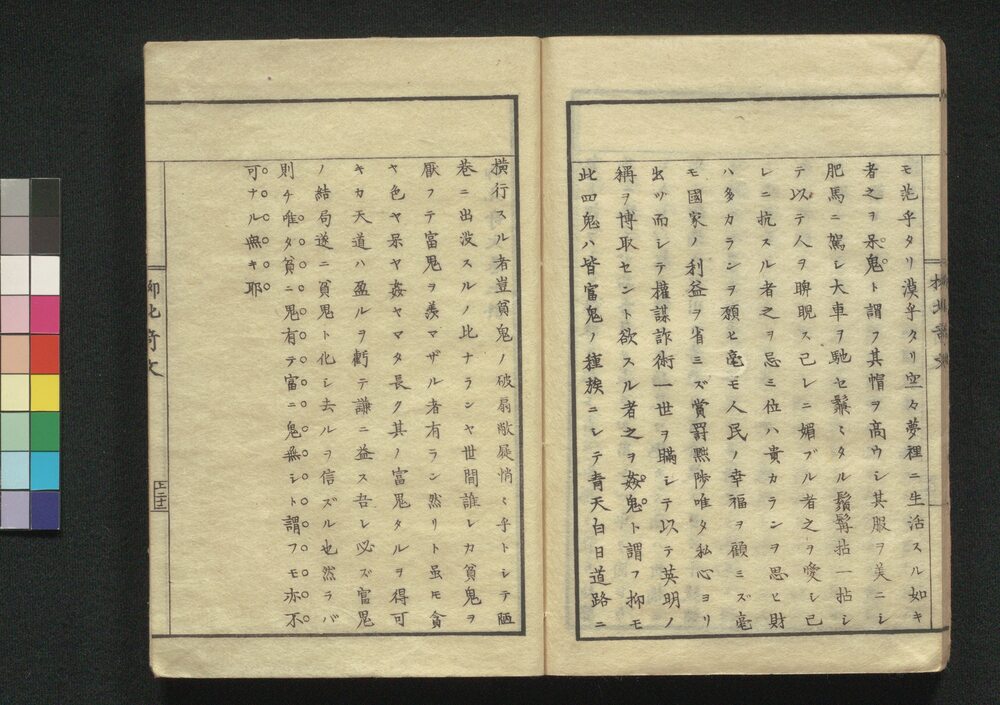 モ茫乎タリ漠乎タリ空々夢裡ニ生活スル如キ
者之ヲ呆鬼ト謂フ其帽ヲ高ウシ其服ヲ美ニシ
肥馬ニ駕シ大車ヲ馳セ鬆々タル鬚髯拈一拈シ
テ以テ人ヲ睥睨ス己レニ媚ブル者之ヲ愛シ己
レニ抗スル者之ヲ忌ミ位ハ貴カランヲ思ヒ財
ハ多カランヲ願ヒ毫モ人民ノ幸福ヲ顧ミズ毫
モ國家ノ利益ヲ省ミズ賞罰黙陟唯タ私心ヨリ
出ヅ而シテ權謀詐術一世ヲ瞞シテ以テ英明ノ
稱ヲ博取セント欲スル者之ヲ姦鬼ト謂フ抑モ
此四鬼ハ皆富鬼ノ種族ニシテ青天白日道路ニ
横行スル者豈貧鬼ノ破扇敝屣悄々乎トシテ陋
巷ニ出没スルノ比ナランヤ世間誰レカ貧鬼ヲ
厭フテ富鬼ヲ羨マザル者有ラン然リト虽モ貪
ヤ色ヤ呆ヤ姦ヤマタ長ク其ノ富鬼タルヲ得可
キカ天道ハ盈ルヲ虧テ謙ニ益ス吾レ必ズ富鬼
ノ結局遂ニ貧鬼ト化シ去ルヲ信ズル也然ラバ
則チ唯タ貧ニ鬼有テ富ニ鬼無シト謂フモ亦不
可ナル無キ耶
柳北奇文
上二十二